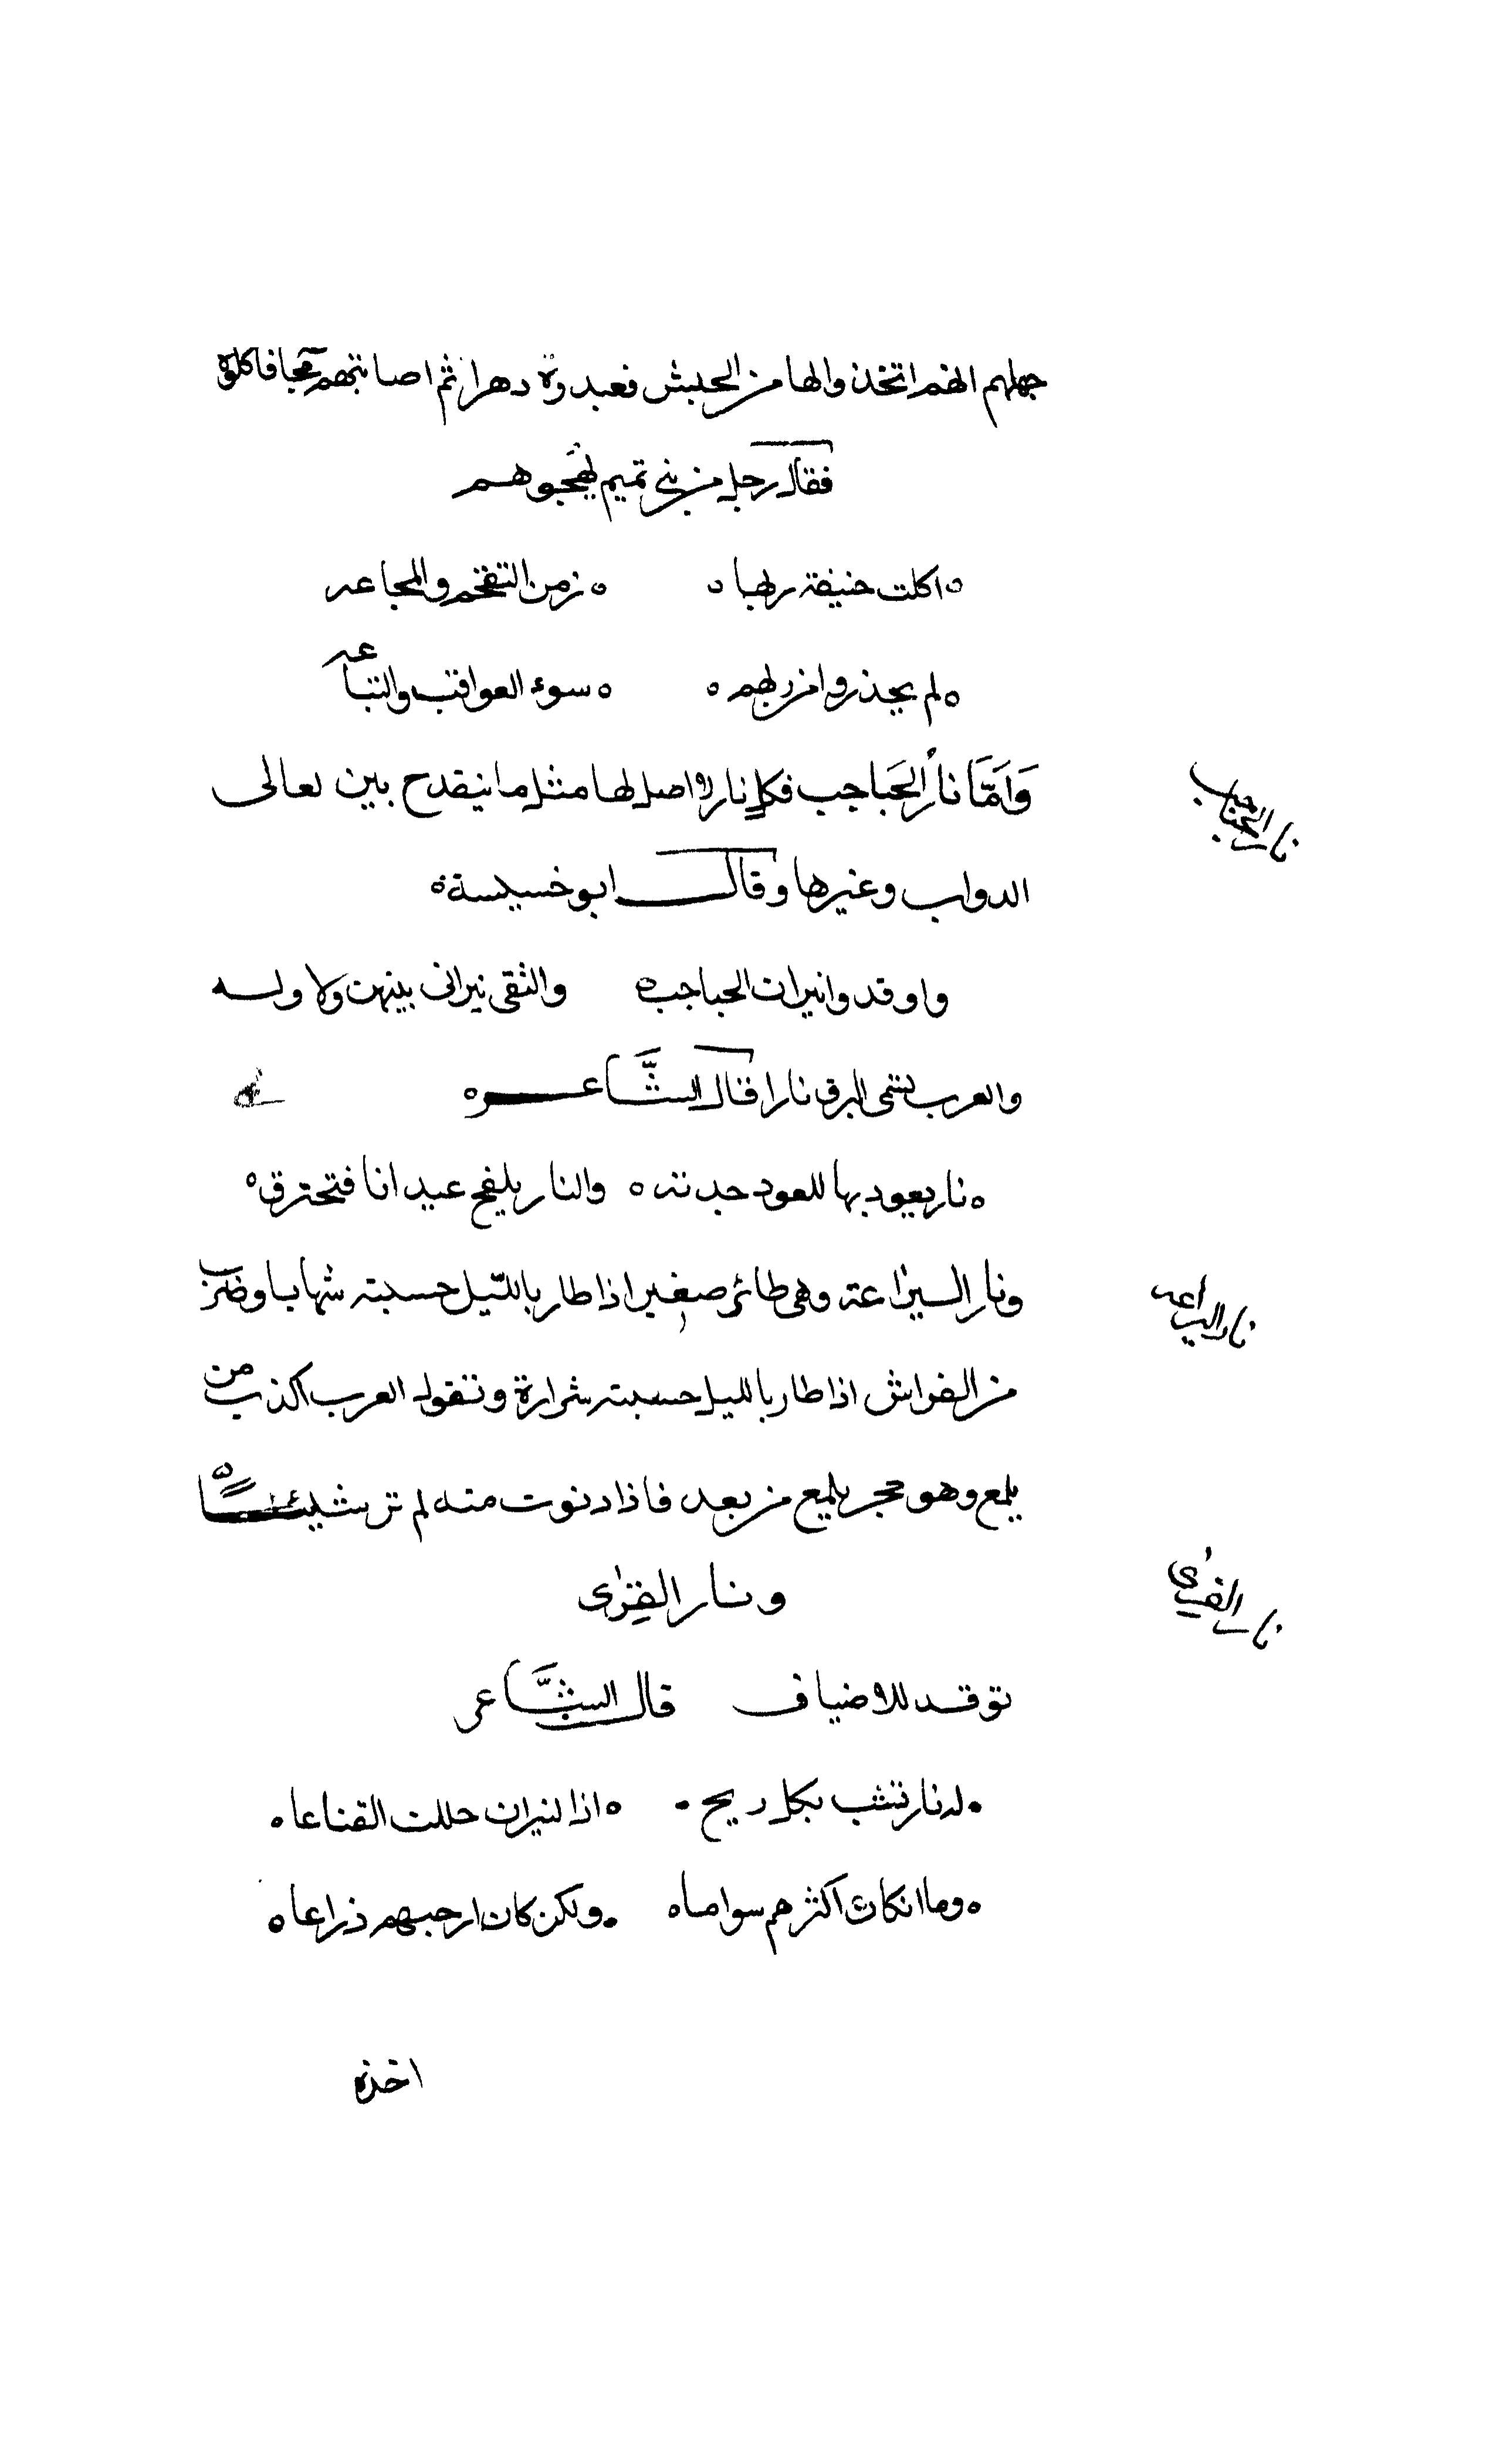 جهلهم انهم اتخذوا الها من الحبش فعبدوه دهرا ثم اصابتهم مجاعة فاكلوه
فقال رجل من بني تميم يهجوهم
اكلت حنيفة ربها ه زمن التقحم والمجاعه
ه لم يحذروا من ربهم ه ه سوء العواقب والتباعه
نار الحباحب
وَامَّا نارُ الحَباحب فكل نار لا اصل لها مثل ما ينقدح بين نعالى
الدواب وغيرها وقال ابو
واوقدوا نيران الحباحب ه والتقى نيرانى بينهن ولا ولسه
والعرب تسمى البرق نارا قال الشَّاعر ه
ه نار يعود بها للعود جدته ه والنار يلفح عيدانا فتحترق ه
نار اليراعه
ونار اليراعة وهى طائر صغير اذا طار بالليل حسبته شهابا وضرب
من الفراش اذا طار بالليل حسبته شرارة وتقول العرب اكذب من
يلمع وهو حجر يلمع من بعد فاذا دنوت منه لم تر شيئًا ه
نار القرى
ونار القِرٰى
توقد للاضياف قال الشَّاعر
له نار تشب بكل ريح ه اذا لنيران جللت القناعا ه
ه وما ان كان اكثرهم سواما ه ولكن كان ارحبهم ذراعا ه
اخذه